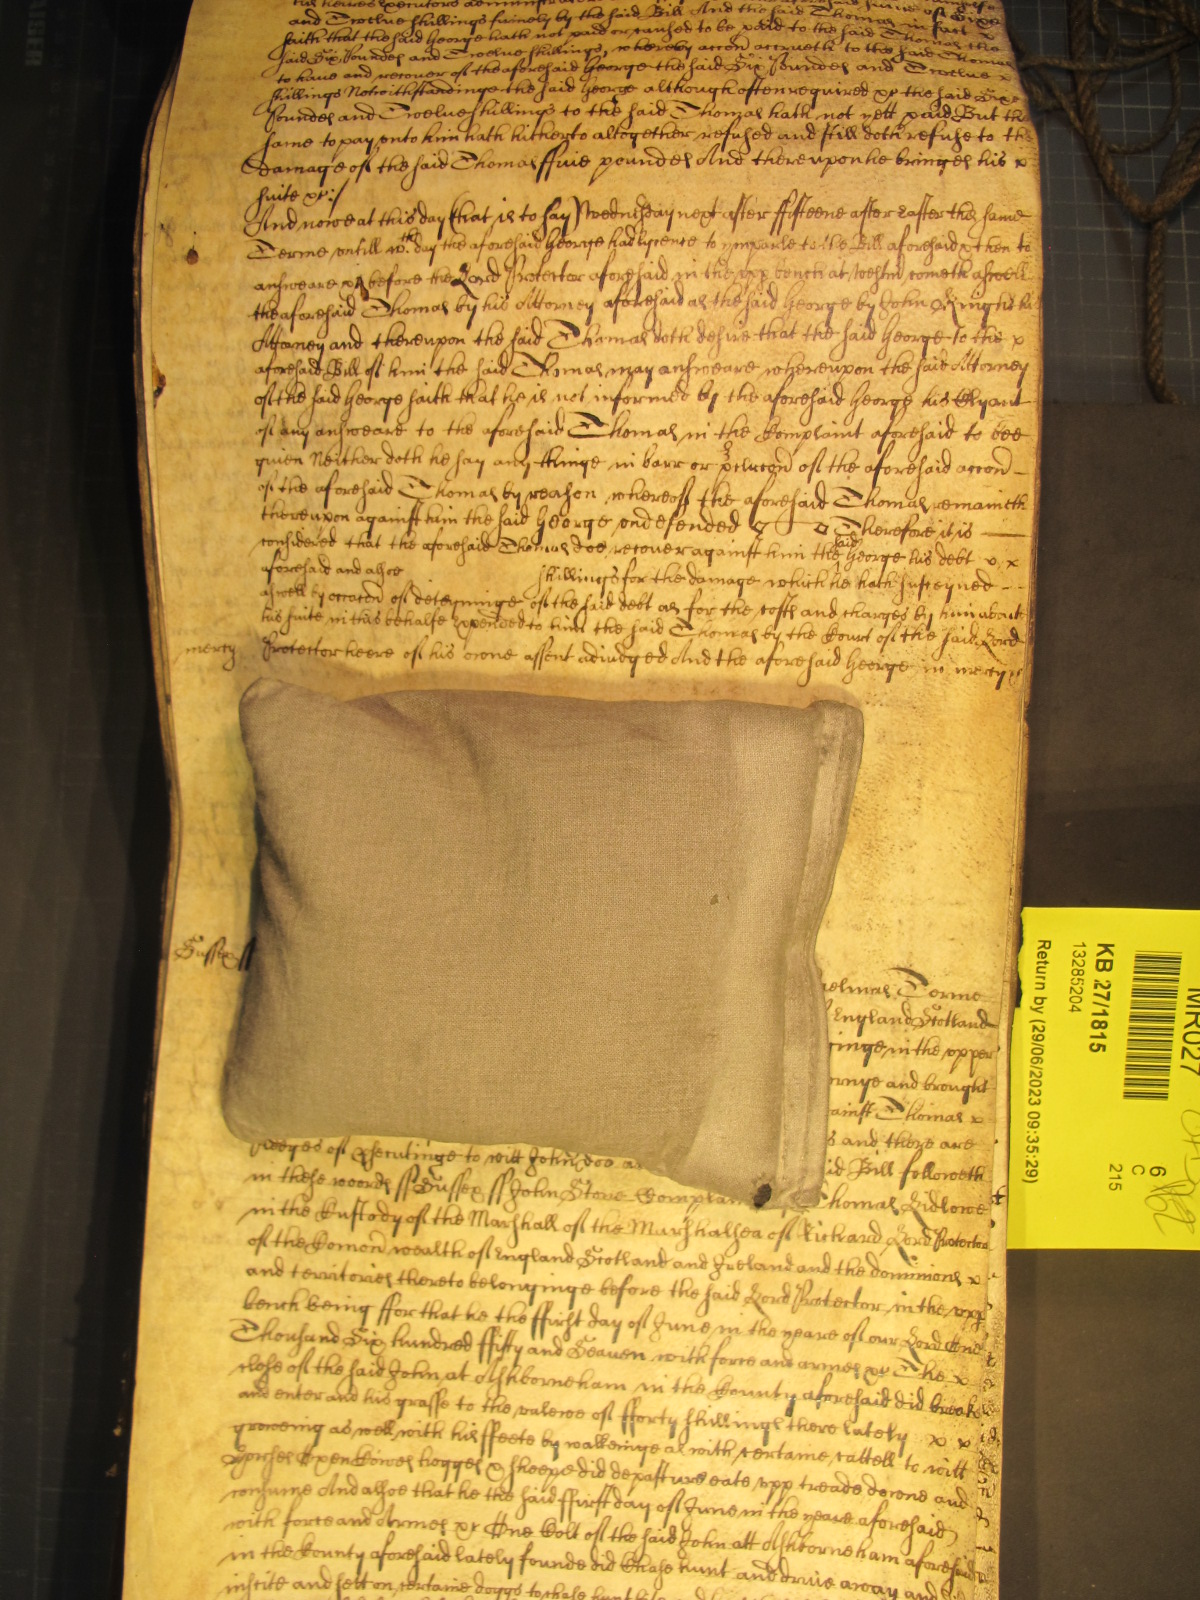 and Twelve shillings feirely by the said Bill And the said Thomas in fact x
saith that the said George hath not paid or caused to be paid to the said Thomas the
said Six Poundes and Twelve shillings, whereby accon accrueth to the said Thomas
to have and recover of the aforesaid George the said Six Poundes and Twelve x
shillings Notwithstandinge the said George although often required &c the said Sixe
Poundes and Twelve shillings to the said Thomas hath not yett paid But the
same to pay unto him hath hitherto altogether refused and still doth refuse to the
Damage of the said Thomas ffive poundes And thereupon he bringes his x
suite &c:/
And nowe at this day (that is to say) Wednesday next after fifteene after Easter this same
Terme untill wch day the aforesaid George had lycence to imparle to the Bill aforesaid & then to
answeare &c before the Lord Protector aforesaid in the upp bench at Westm cometh aswell
the aforesaid Thomas by his Attorney aforesaid as the said George by John Knight his
Attorney and thereupon the said Thomas doth desire that the said George to the x
aforesaid Bill of him the said Thomas may answeare whereupon the said Attorney
of the said George saith that he is not informed by the aforesaid George his Clyant
of any answeare to the aforesaid Thomas in the Complaint aforesaid to bee
given Neither doth he say any thinge in barr or pclucon of the aforesaid accon
of the aforesaid Thomas by reason whereof the aforesaid Thomas remaineth
thereupon against him the said George undefended Therefore it is
considered that the aforesaid Thomas doe recover against him the said George his debt x x
aforesaid and alsoe shillings for the damage which he hath susteyned
aswell by occacon of deteyninge of the said debt as for the costs and charges by him about
his suite in this behalfe expended to him the said Thomas by the Court of the said Lord
mercy Protector heere of his owne assent adiudged And the aforesaid George in mercy &c
Sussex ss
Terme
England Scotland
in the upper
and brought
Thomas x
and there are
pledges of prosecutinge to witt John Doo Bill followeth
in these words ss Sussex ss John Stone Thomas Bidlowe
in the Custody of the Marshall of the Marshalsea of Richard Lord Protector
of the Comon wealth of England Scotland and Ireland and the dominions x
and territories thereto belonginge before the said Lord Protector in the upp
bench being ffor that he the ffirst day of June in the yeare of our Lord One
Thousand Six hundred ffifty and Seaven with force and armes &c The x
close of the said John at Ashborneham in the County aforesaid did break
and enter and his grasse to the valewe of fforty shillings there lately x x
groweing as well with his ffeete by walkeinge as with certaine cattell to witt
horses Oxen Cowes hogges & sheepe did depasture eate upp treade downe and
consume And alsoe that he the said ffirst day of June in the yeare aforesaid
with force and Armes &c One Colt of the said John att Ashborneham aforesaid
in the County aforesaid lately founde did Chase hunt and drive away and did
incite and sett on certaine doggs to chase
KB 27/1815
13285204
Return by (29/06/2023 09:35:29)
MR027
6
C
215